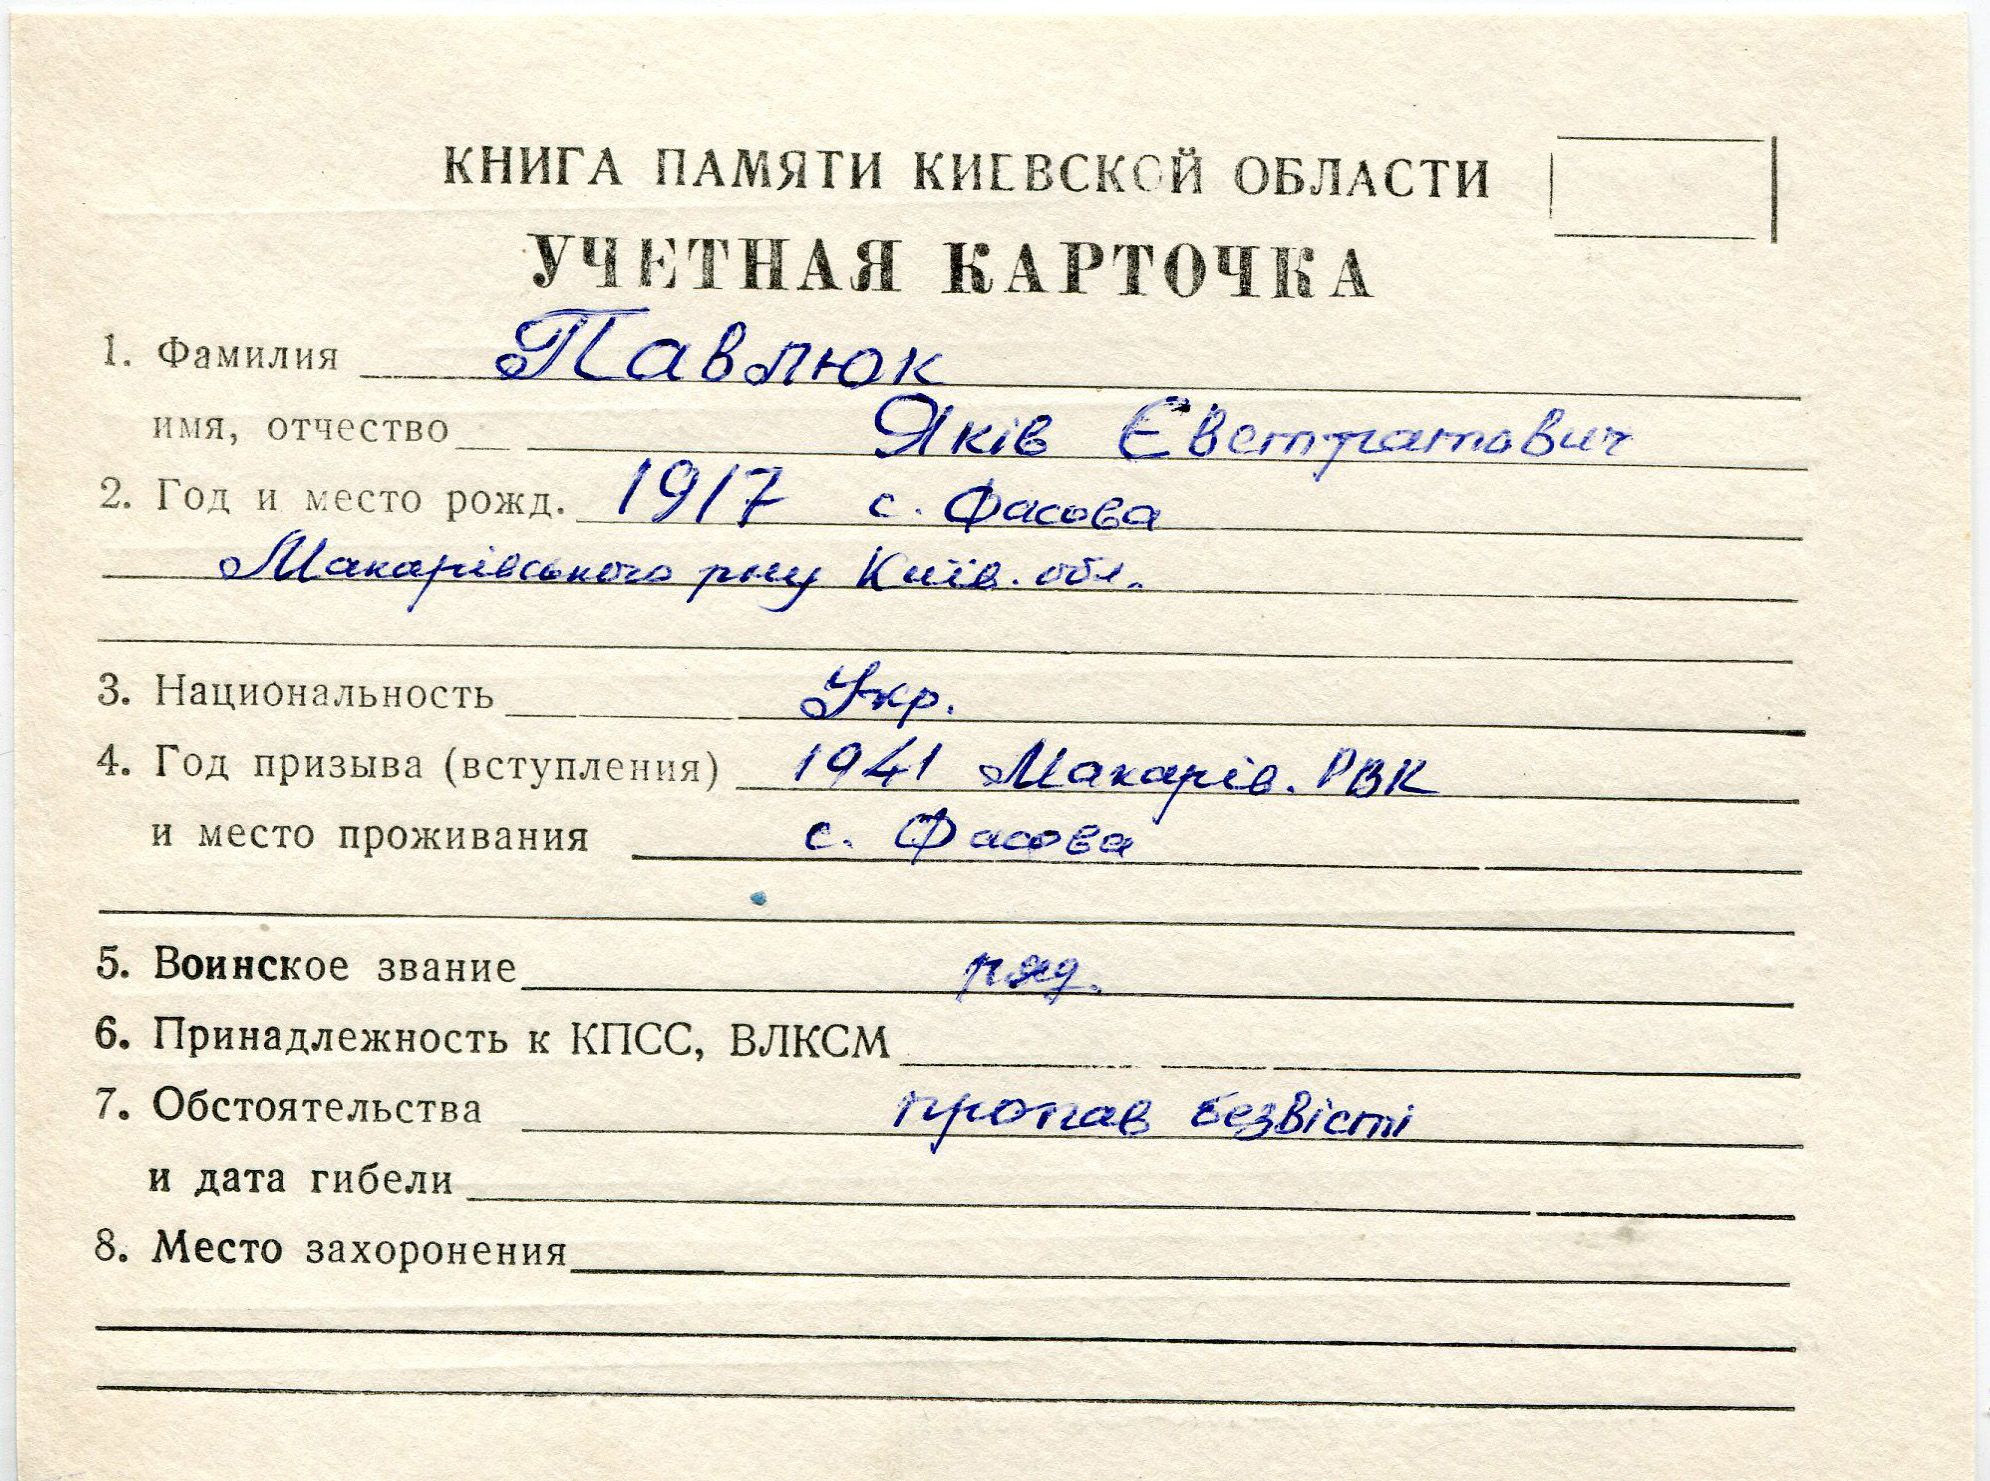 КНИГА ПАМЯТИ КИЕВСКОЙ ОБЛАСТИ
УЧЕТНАЯ КАРТОЧКА
1. Фамилия Павлюк
имя, отчество Яків Євстратович
2. Год и место рожд. 1917 с. Фасова
Макарівського рну Київ. обл.
3. Национальность Укр.
4. Год призыва (вступления) 1941 Макарів. РВК
и место проживания с. Фасова
5. Воинское звание ряд.
6. Принадлежность к КПСС, ВЛКСМ
7. Обстоятельства пропав безвісті
и дата гибели
8. Место захоронения